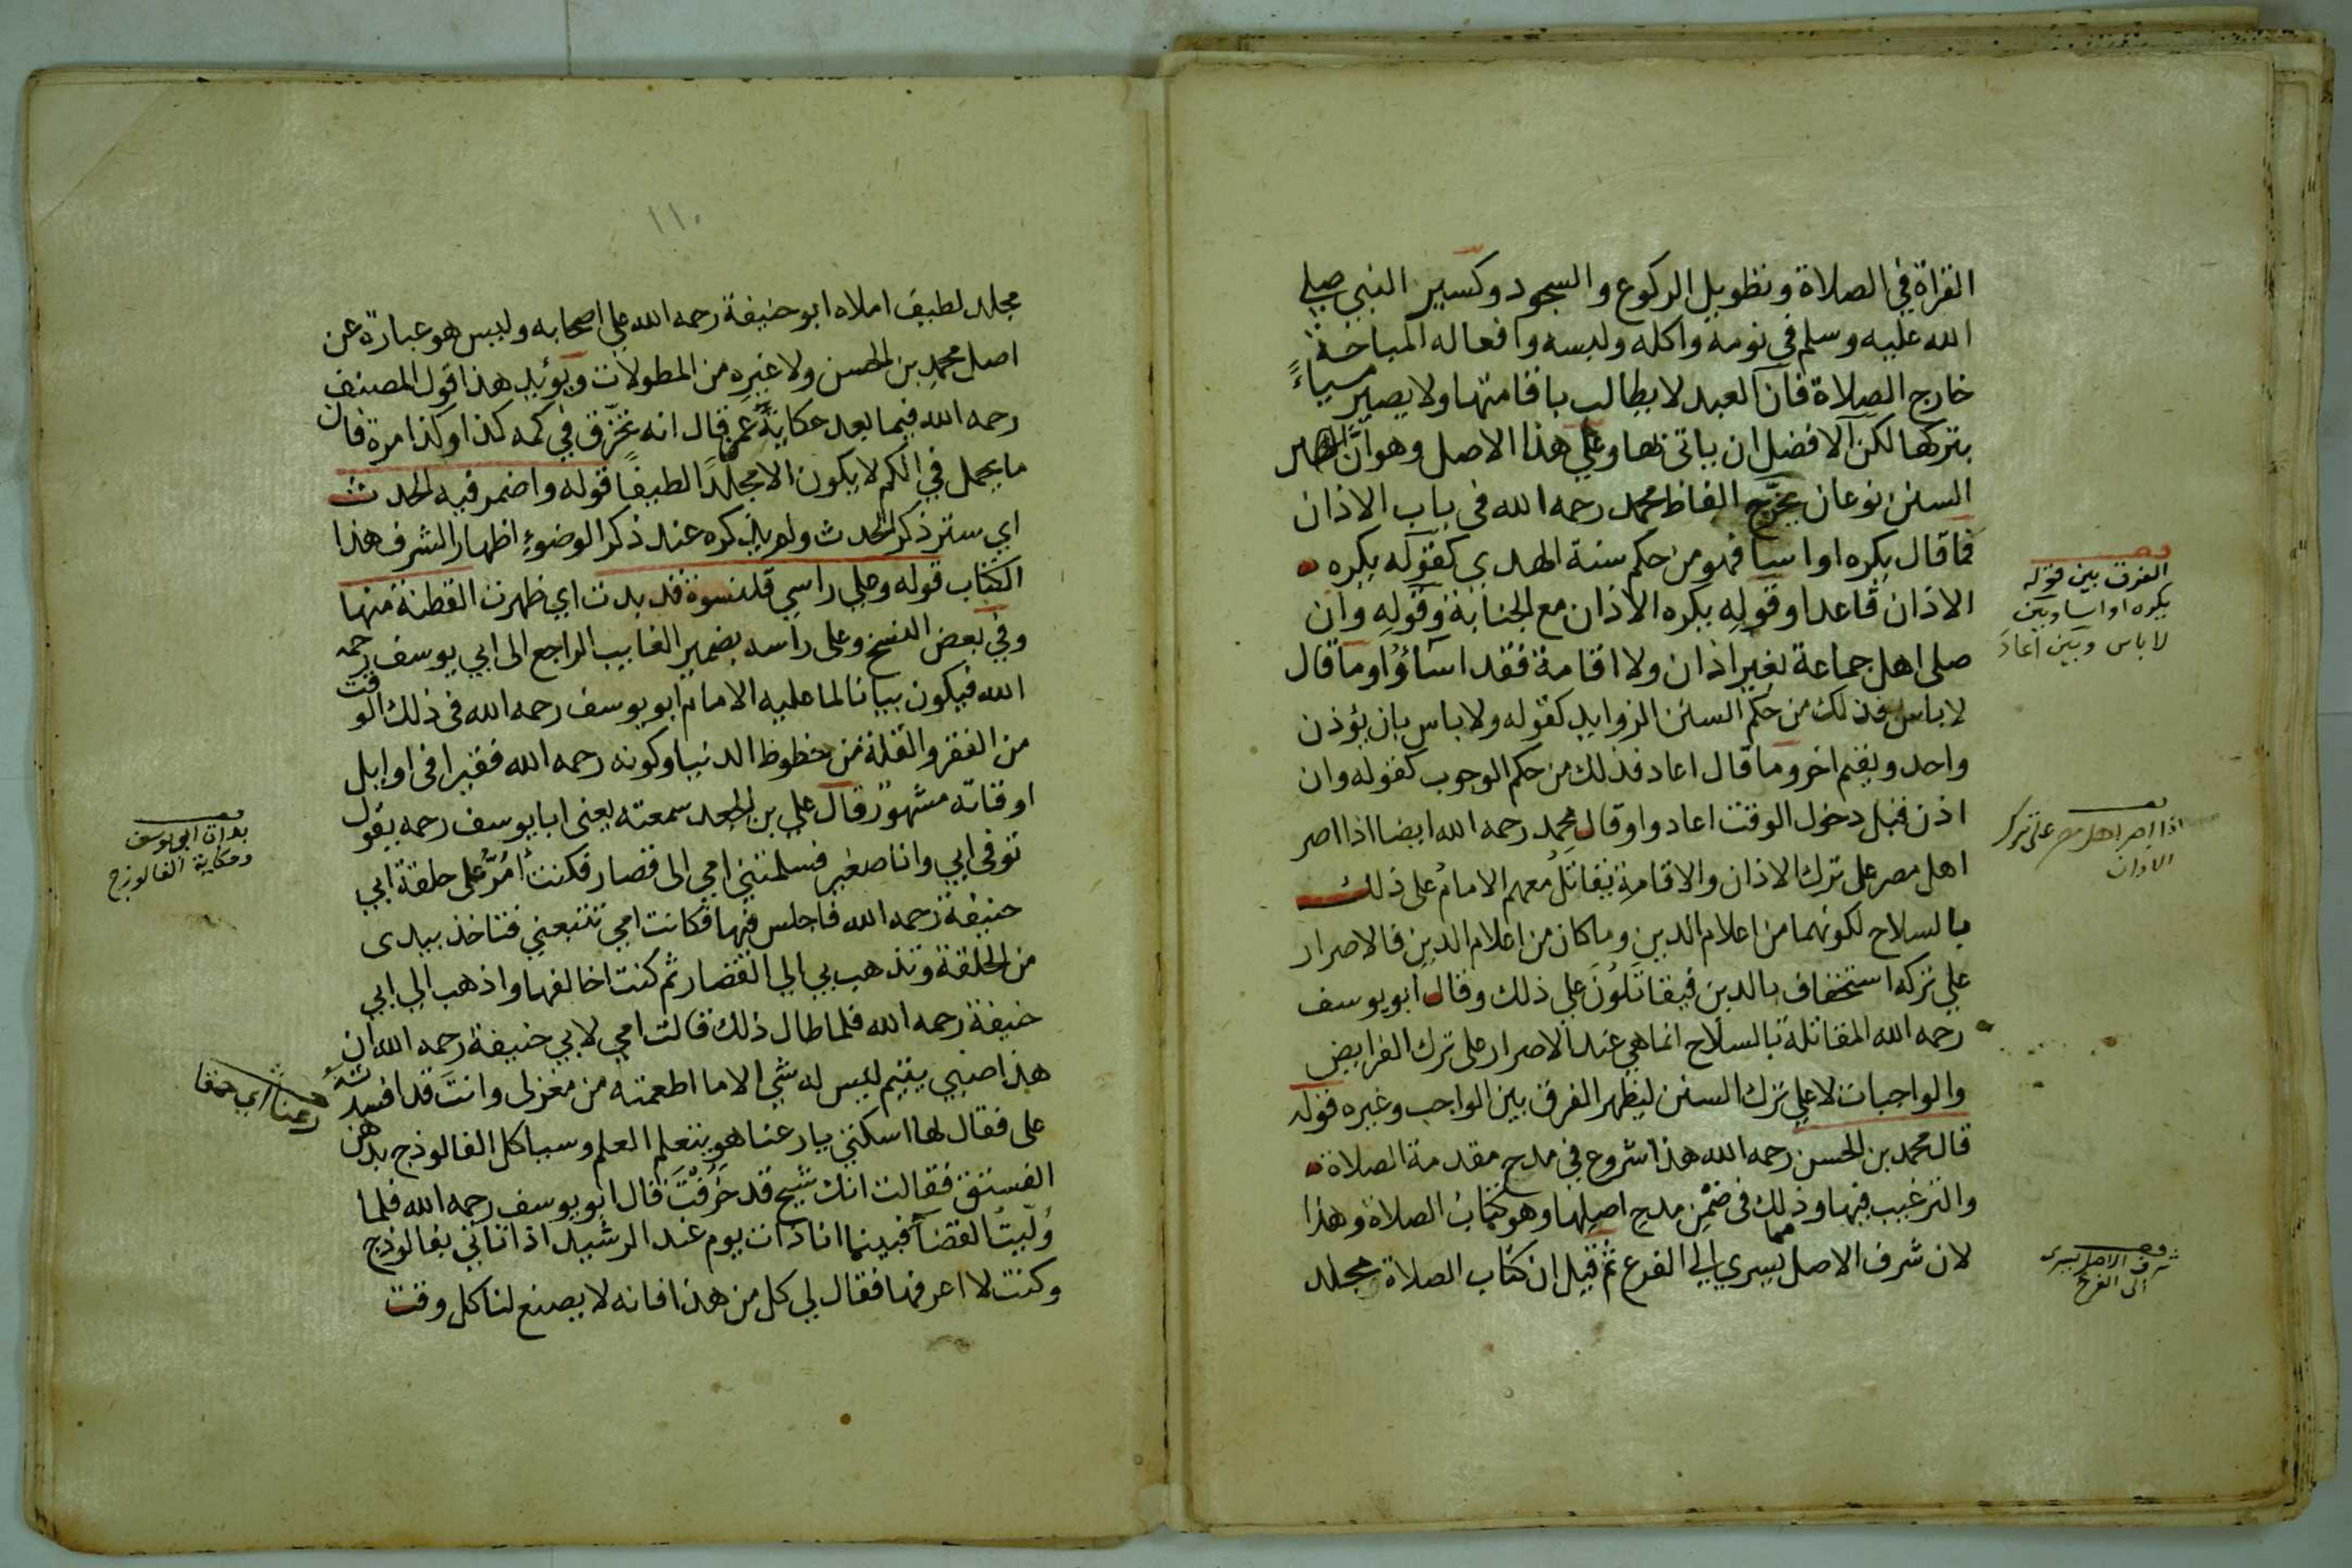 القراة في الصلاة وتطويل الركوع والسجود وكسير النبي صلى
الله عليه وسلم في نومه واكله ولبسه وافعاله المباحة
خارج الصلاة فان العبد لا يطالب باقامتها ولا يصير مسياءً
بتركها لكن الافضل ان ياتى بها وعلي هذا الاصل وهو انّ
السنن نوعان يخرّج الفاظ محمد رحمه الله في باب الاذان
فما قال يكره او اسا فهو من حكم سنة الهدى كقوله يكره
الاذان قاعدا وقوله يكره الاذان مع الجنابة وقوله وان
صلى اهل جماعة بغير اذان ولا اقامة فقد اساؤا وما قال
لا باس فذلك من حكم السنن الزوايد كقوله ولا باس بان يؤذن
واحد ويقيم اخر وما قال اعاد فذلك من حكم الوجوب كقوله وان
اذن قبل دخول الوقت اعادوا وقال محمد رحمه الله ايضا اذا اصر
اهل مصر على ترك الاذان والاقامة يقاتل معهم الامام على ذلك
بالسلاح لكونهما من اعلام الدين وما كان من اعلام الدين فالاصرار
علي تركه استخفاف بالدين فيقاتلون علي ذلك وقال ابو يوسف
رحمه الله المقاتلة بالسلاح انما هي عند الاصرار على ترك الفرايض
والواجبات لا علي ترك السنن ليظهر الفرق بين الواجب وغيره قوله
قال محمد بن الحسن رحمه الله هذا شروع في مدح مقدمة الصلاة
والترغيب فيها وذلك في ضمن مدح اصلها وهو كتاب الصلاة وهذا
لان شرف الاصل مما يسري الي الفرع ثم قيل ان كتاب الصلاة مجلد
الفرق بين قوله
يكره او اسا وبين
لا باس وبين اعاد
اذا اصر اهل مصر على ترك
الاذان
شرف الاصل يسرى
الى الفرع
١١٠
مجلد لطيف املاه ابو حنيفة رحمه الله علي اصحابه وليس هو عبارة عن
اصل محمد بن الحسن ولا غيره من المطولات ويؤيد هذا قول المصنف
رحمه الله فيما بعد حكاية عمن قال انه تخرّق في كمه كذا وكذا مرة فان
ما يحمل في الكم لا يكون الا مجلدا لطيفا قوله واضمر فيه الحدث
اي ستر ذكر الحدث ولم يذكره عند ذكر الوضوء اظهارا لشرف هذا
الكتاب قوله وعلي راسي قلنسوة قد بدت اي ظهرت القطنة منها
وفي بعض النسخ وعلى راسه بضمير الغايب الراجع الى ابي يوسف رحمه
الله فيكون بيانا لما عليه الامام ابو يوسف رحمه الله في ذلك الوقت
من الفقر والقلة من حظوظ الدنيا وكونه رحمه الله فقيرا في اوايل
اوقاته مشهور قال علي بن الجعد سمعته يعنى ابا يوسف رحمه يقول
توفى ابي وانا صغير فسلمتني امي الى قصار فكنت امُرُّ على حلقة ابي
حنيفة رحمه الله فاجلس فيها فكانت امي تتبعني فتاخذ بيدى
من الحلقة وتذهب بي الي القصار ثم كنت اخالفها واذهب الي ابي
حنيفة رحمه الله فلما طال ذلك قالت امي لابي حنيفة رحمه الله ان
هذا صبي يتيم ليس له شي الا ما اطعمته من مغزلى وانت قد افسدته
على فقال لها اسكتي يا رعنا هو يتعلم العلم وسياكل الفالوذج بدهن
الفستق فقالت انك شيخ قد خرفت قال ابو يوسف رحمه الله فلما
وليت القضا فبينما انا ذات يوم عند الرشيد اذ اتاني بفالوذج
وكنت لا اعرفها فقال لي كل من هذا فانه لا يصنع لنا كل وقت
ابي يوسف
وحكاية الفالوزج
رعنا اي حمقا